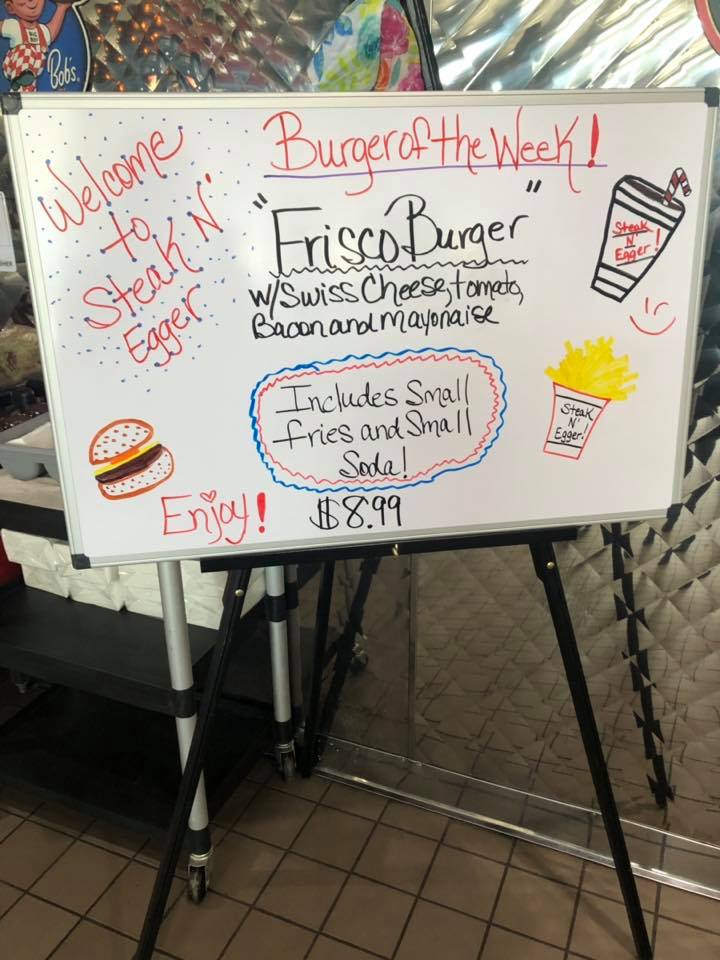 Bob's
Welcome
to
Steak N'
Egger
Burger of the Week!
"Frisco Burger"
w/Swiss Cheese, tomato,
Bacon and mayonaise
Steak
N'
Egger!
Includes Small
fries and Small
Soda!
Steak
N'
Egger!
Enjoy!
$8.99